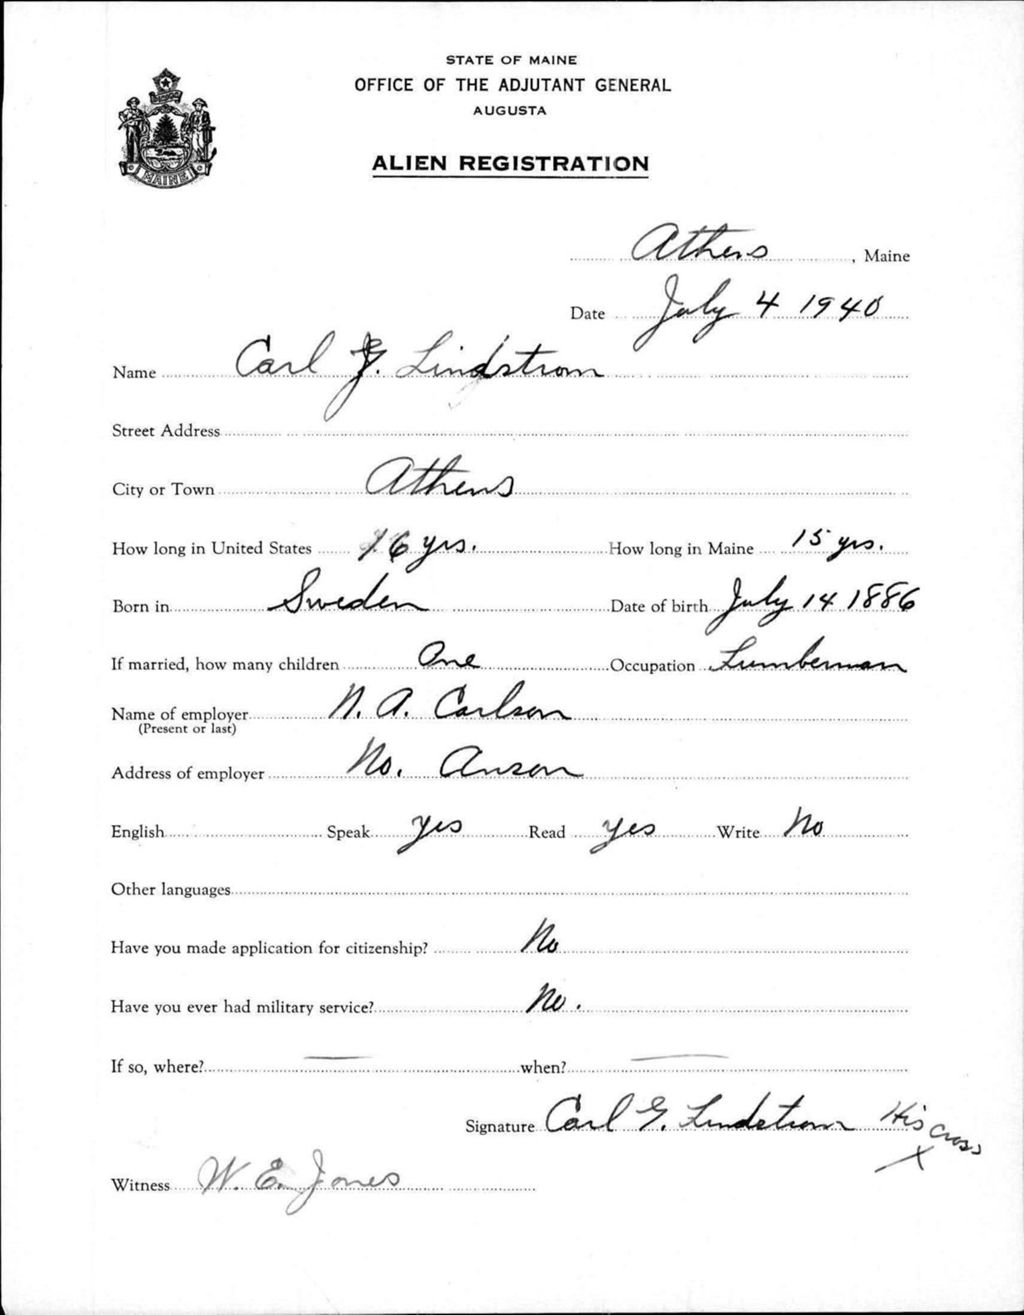 STATE OF MAINE
OFFICE OF THE ADJUTANT GENERAL
AUGUSTA
MAINE
ALIEN REGISTRATION
Athens, Maine
Date July 4 1940
Name Carl G. Lindstrom
Street Address
City or Town Athens
How long in United States 16 yrs. How long in Maine 15 yrs.
Born in Sweden Date of birth July 14 1886
If married, how many children One Occupation Lumberman
Name of employer N. A. Carlson
(Present or last)
Address of employer No. Anson
English Speak yes Read yes Write No
Other languages
Have you made application for citizenship? No
Have you ever had military service? No.
If so, where? — when? —
Signature Carl G. Lindstrom His Cross X
Witness W. E. Jones